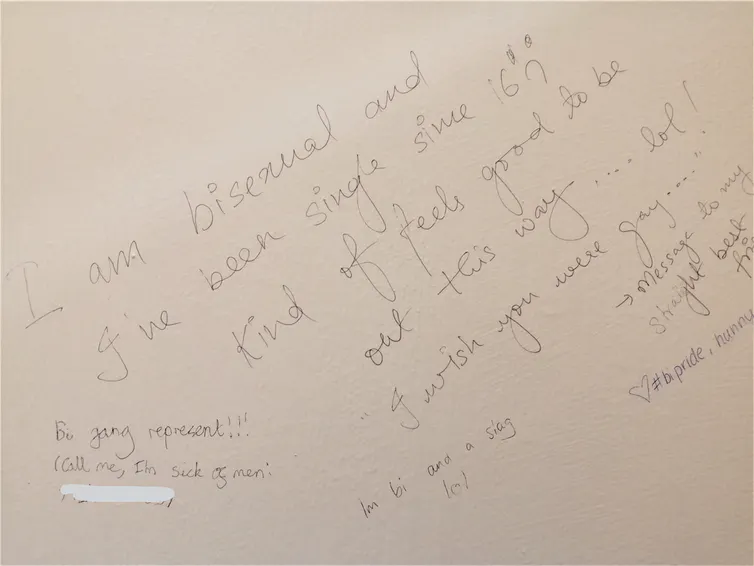 I am bisexual and
I've been single since 16
Kind of feels good to be
out this way .... lol!
"I wish you were gay...."
→ Message to my
straight best
frie
♡#bipride, hunny
Bi gang represent!!!
(Call me, I'm sick of men:
Im bi and a slag
lol